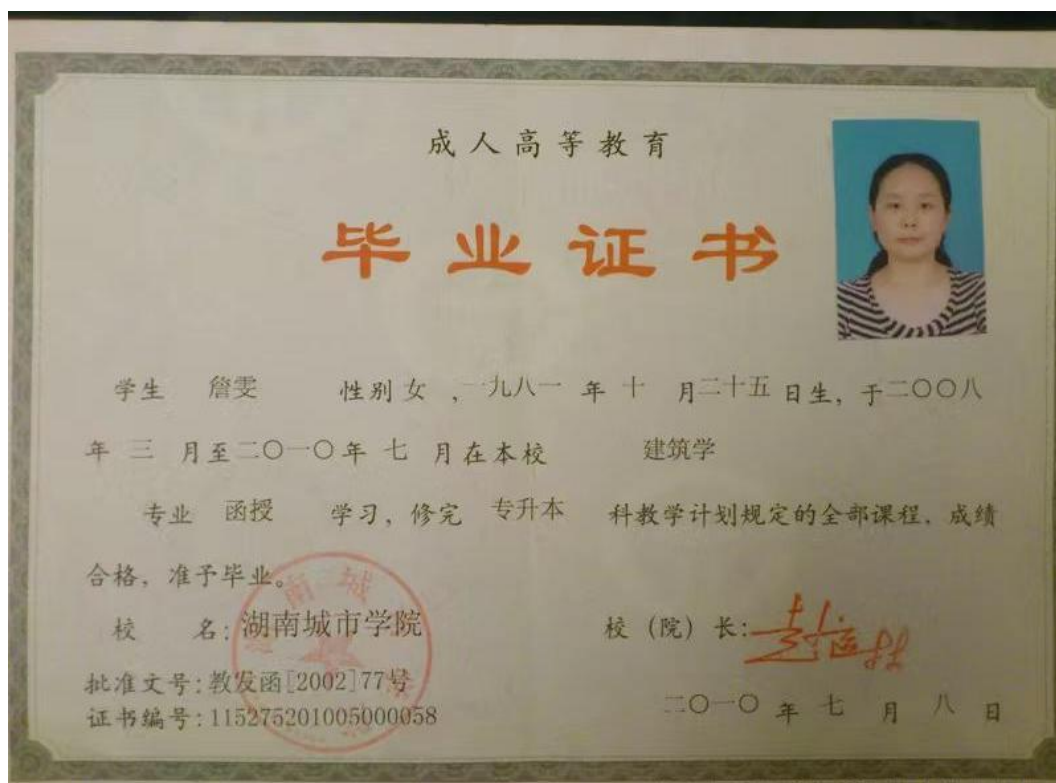 成人高等教育
毕业证书
学生 詹雯 性别 女 , 一九八一 年 十 月二十五 日生, 于二〇〇八
年 三 月至二〇一〇年 七 月在本校 建筑学
专业 函授 学习, 修完 专升本 科教学计划规定的全部课程, 成绩
合格, 准予毕业。
校 名: 湖南城市学院
校 (院) 长:
批准文号: 教发函[2002]77号
二〇一〇 年 七 月 八 日
证书编号: 115275201005000058